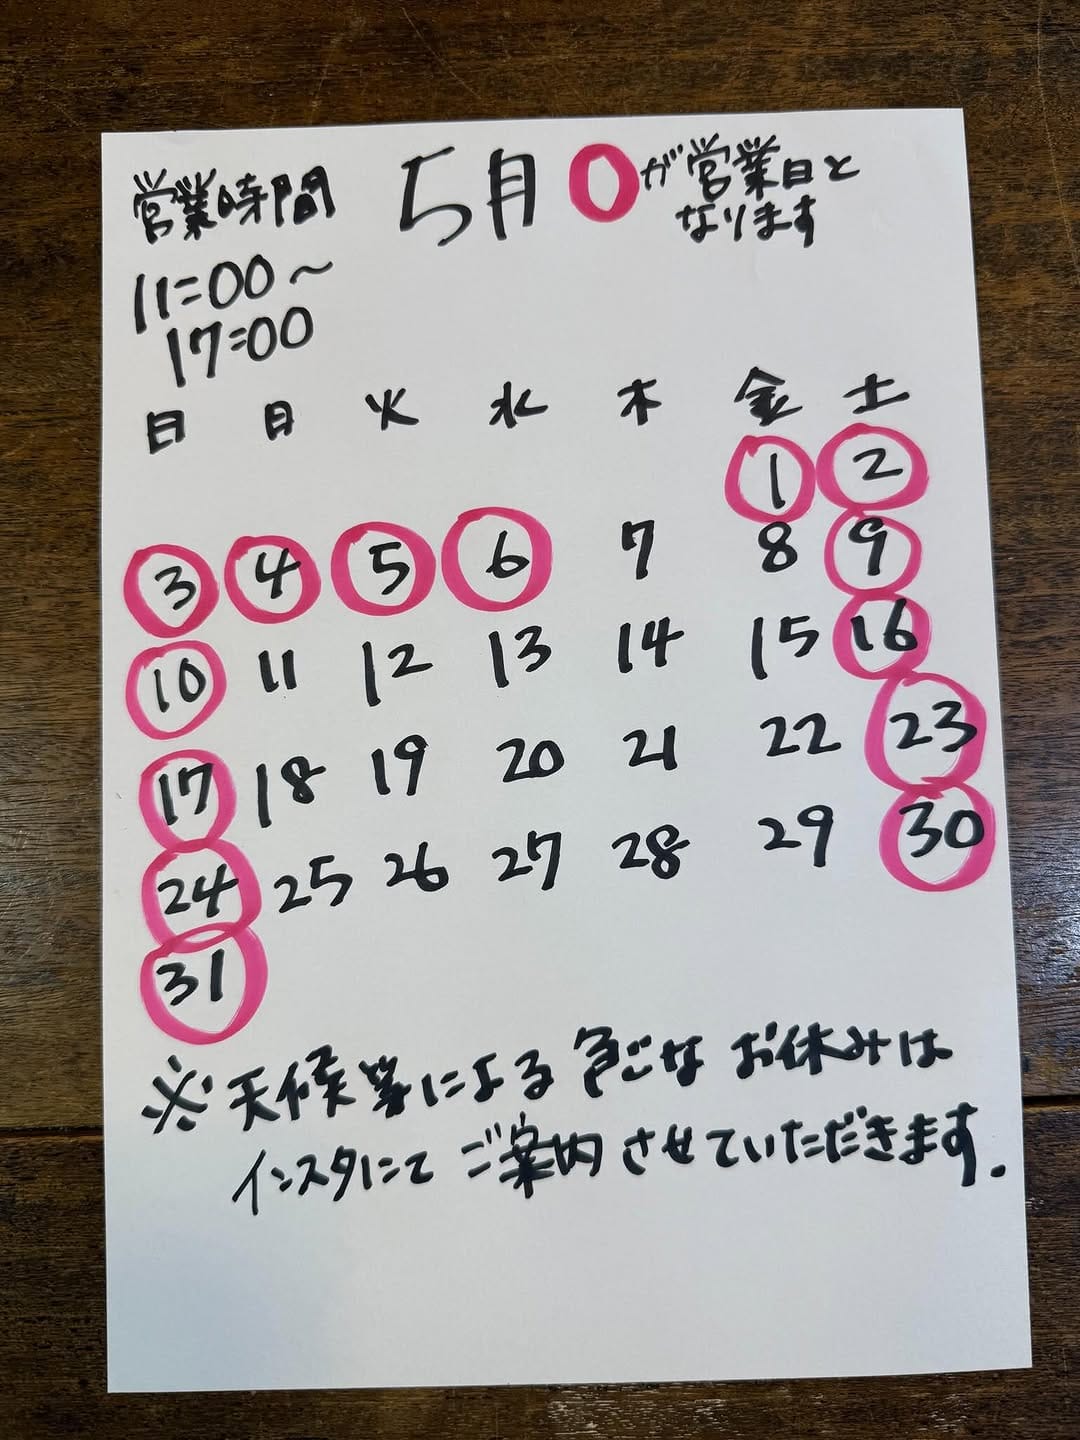 営業時間
11:00～
17:00
5月 〇が営業日と
なります
日 月 火 水 木 金 土
1 2
3 4 5 6 7 8 9
10 11 12 13 14 15 16
17 18 19 20 21 22 23
24 25 26 27 28 29 30
31
※天候等による急ごなお休みは
インスタにてご案内させていただきます.